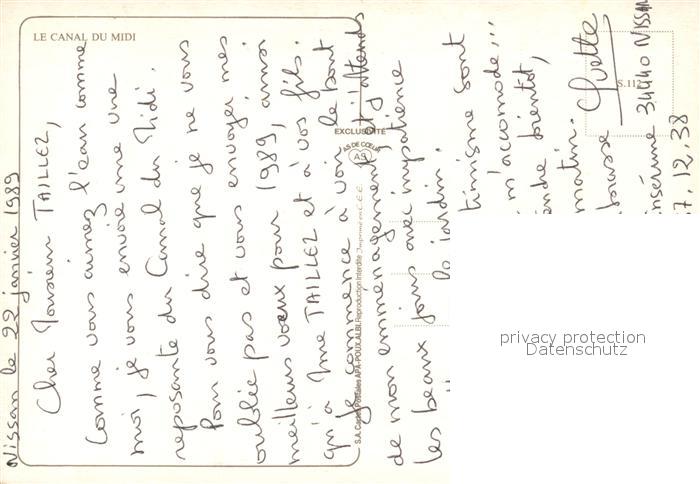 LE CANAL DU MIDI
Nissan le 22 janvier 1989
Cher Monsieur TAILLEZ,
Comme vous aimez l'eau comme
moi, je vous envoie une vue
reposante du Canal du Midi.
Pour vous dire que je ne vous
oublie pas et vous envoyer mes
meilleurs voeux pour 1989, ainsi
qu'à Mme TAILLEZ et à vos fils.
Je commence à voir le bout
de mon emménagement, et j'attends
les beaux jours avec impatience
le jardin.
timisme sont
m'accomode...
bientôt,
matin. Yvette
insérune 34440 NISSAN
7.12.38
EXCLUSIVITÉ
AS DE CŒUR
AS
S.A. Cartes Postales APA-POUX ALBI. Reproduction Interdite Imprimé en C.E.E.
S.112
privacy protection
Datenschutz